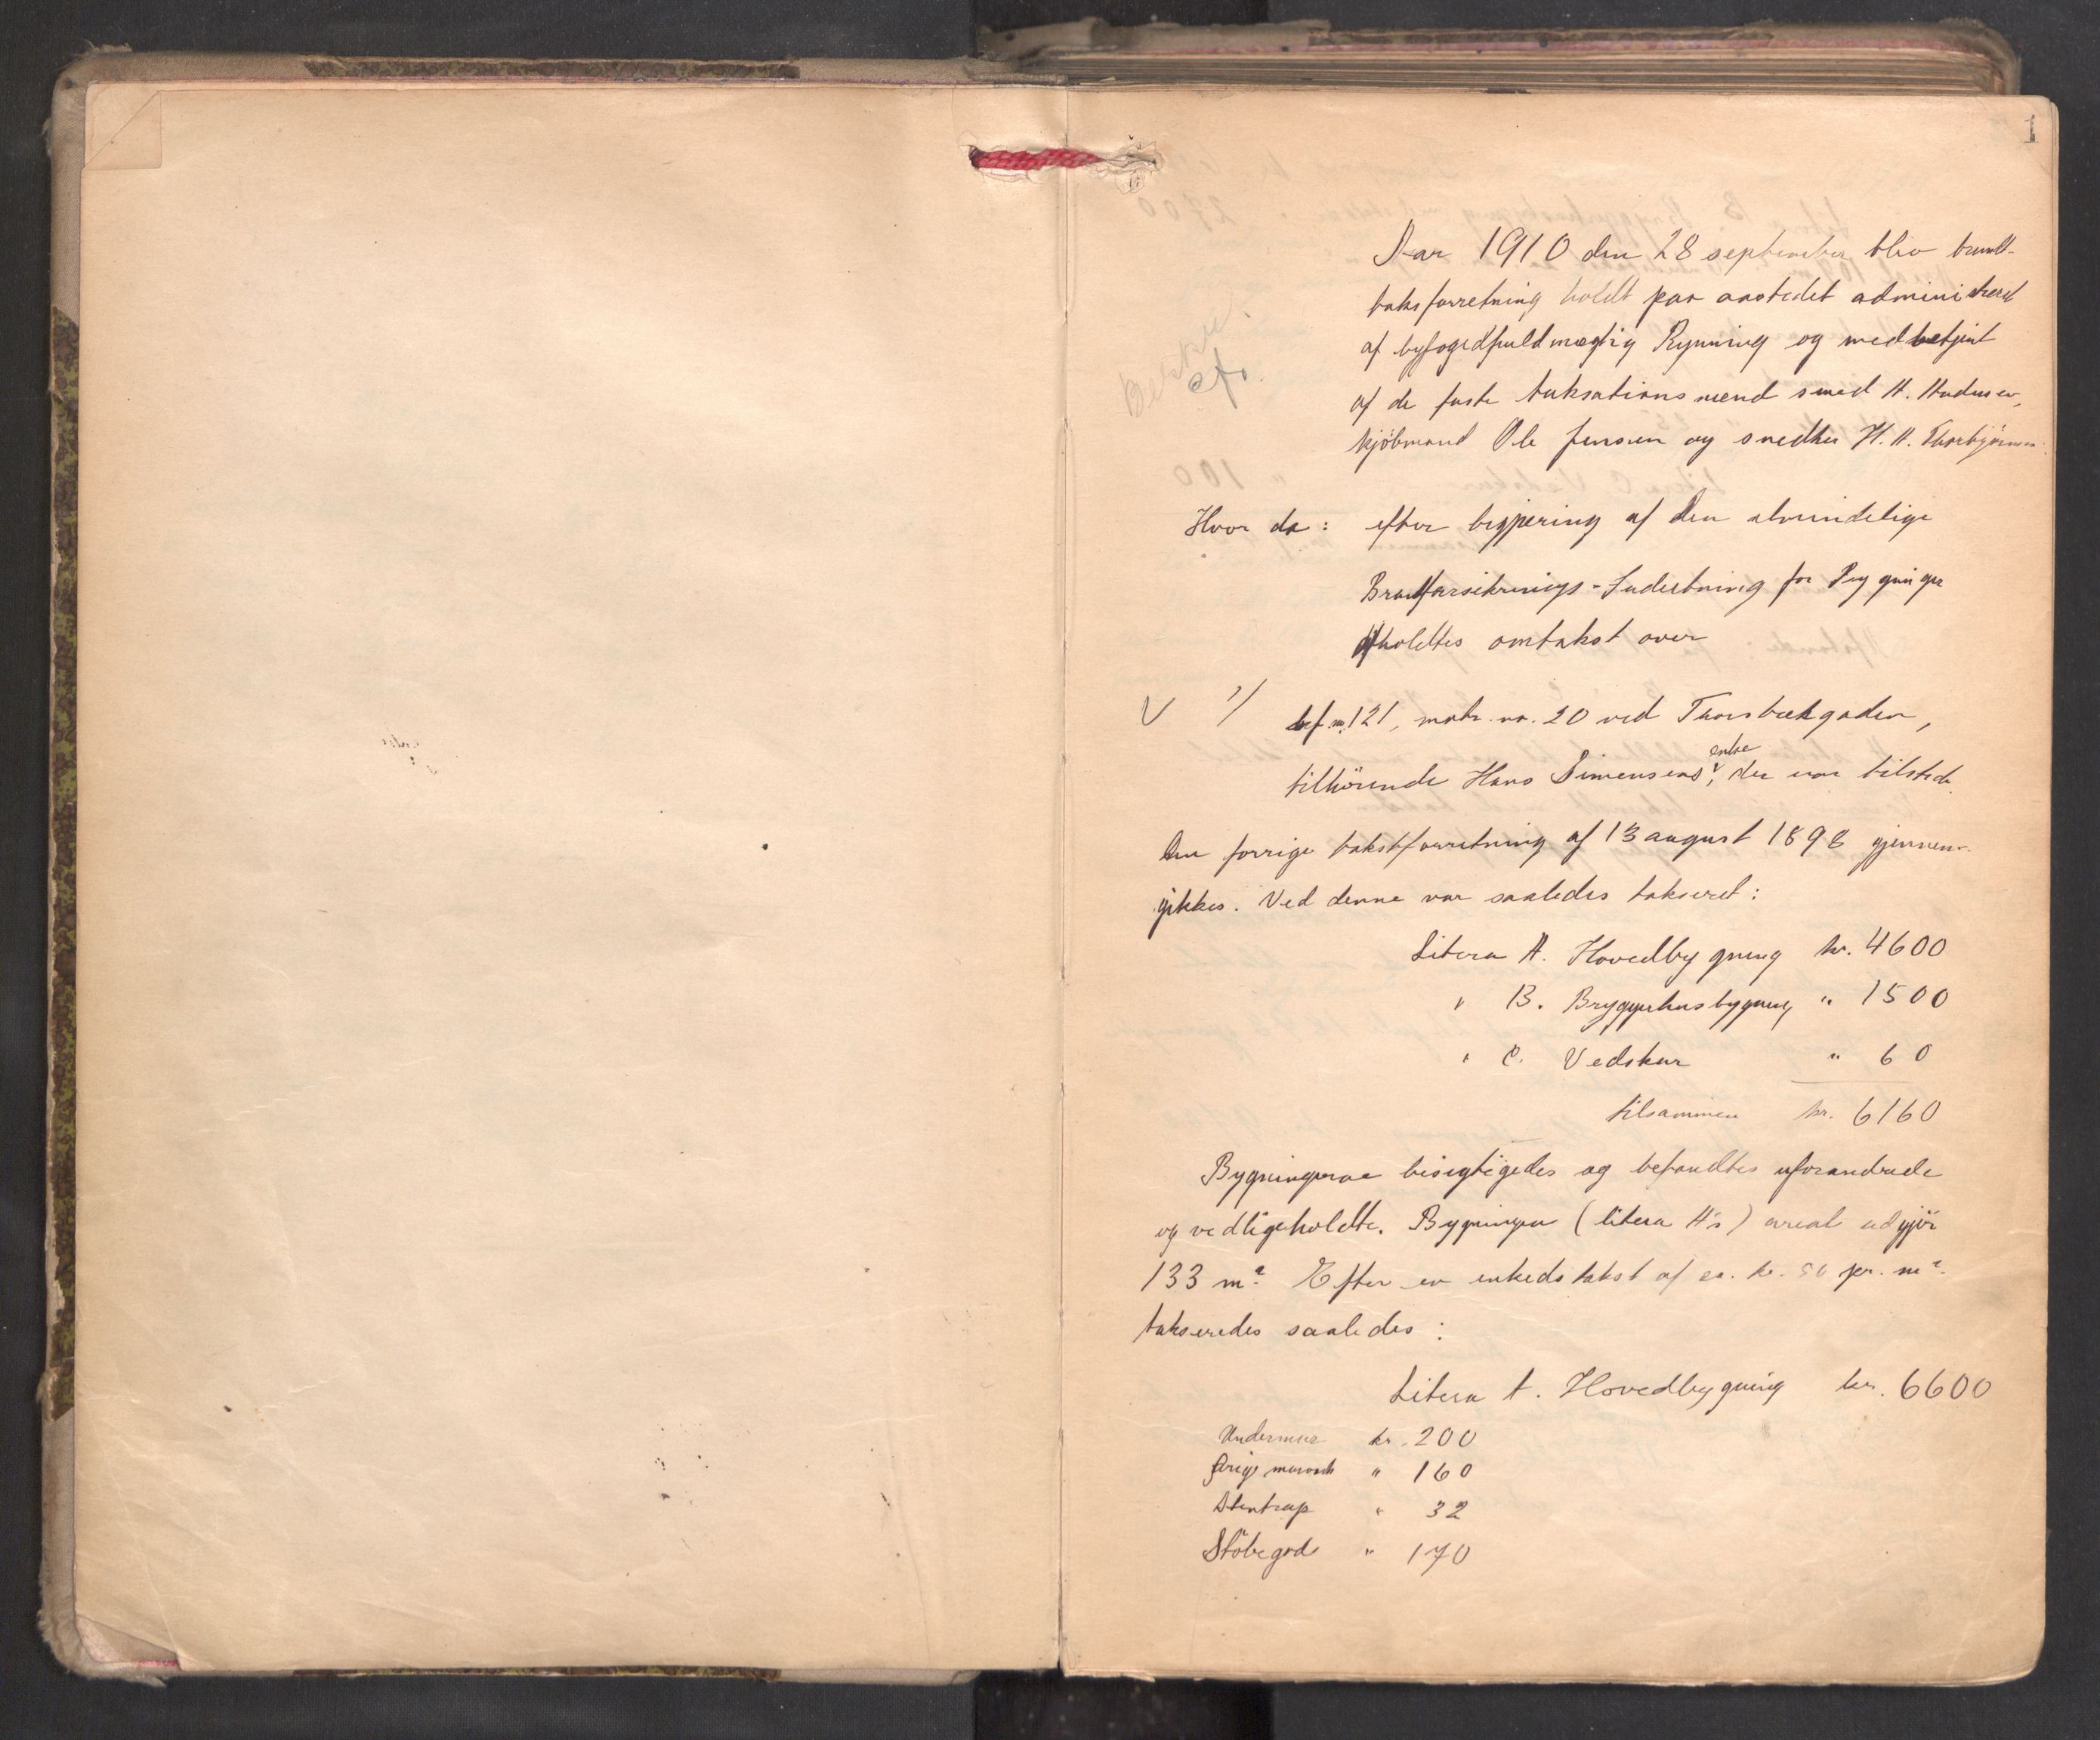 1
Aar 1910 den 28 september blev brandt-
taksforretning holdt paa aastedet administreret
af byfogedfuldmægtig Rynning og medbetjent
af de faste taksationsmænd smed A. Andersen,
kjöbmand Ole Jensen og snedker H. A. Thorbjörnsen.
Hvor da: efter begjæring af Den almindelige
Brandforsikrings-Indretning for Bygninger
afholdtes omtakst over
1/ br.f.no. 121, matr. no. 20 ved Thorsbækgaden,
tilhörende Hans Simensens enke, der var tilstede.
Den forrige takstforretning af 13 august 1898 gjennem-
gikkes. Ved denne var saaledes takseret:
Litera A. Hovedbygning kr. 4600
" B. Bryggerhusbygning " 1500
" C. Vedskur " 60
tilsammen kr. 6160
Bygningerne besigtigedes og befandtes uforandrede
og vedligeholdte. Bygningen (litera A's) areal udgjör
133 m². Efter en enhedstakst af ca. kr. 50 pr. m².
takseredes saaledes:
Litera A. Hovedbygning kr. 6600
Undermur kr. 200
Övrige murverk " 160
Stentrap " 32
Stöbegods " 170